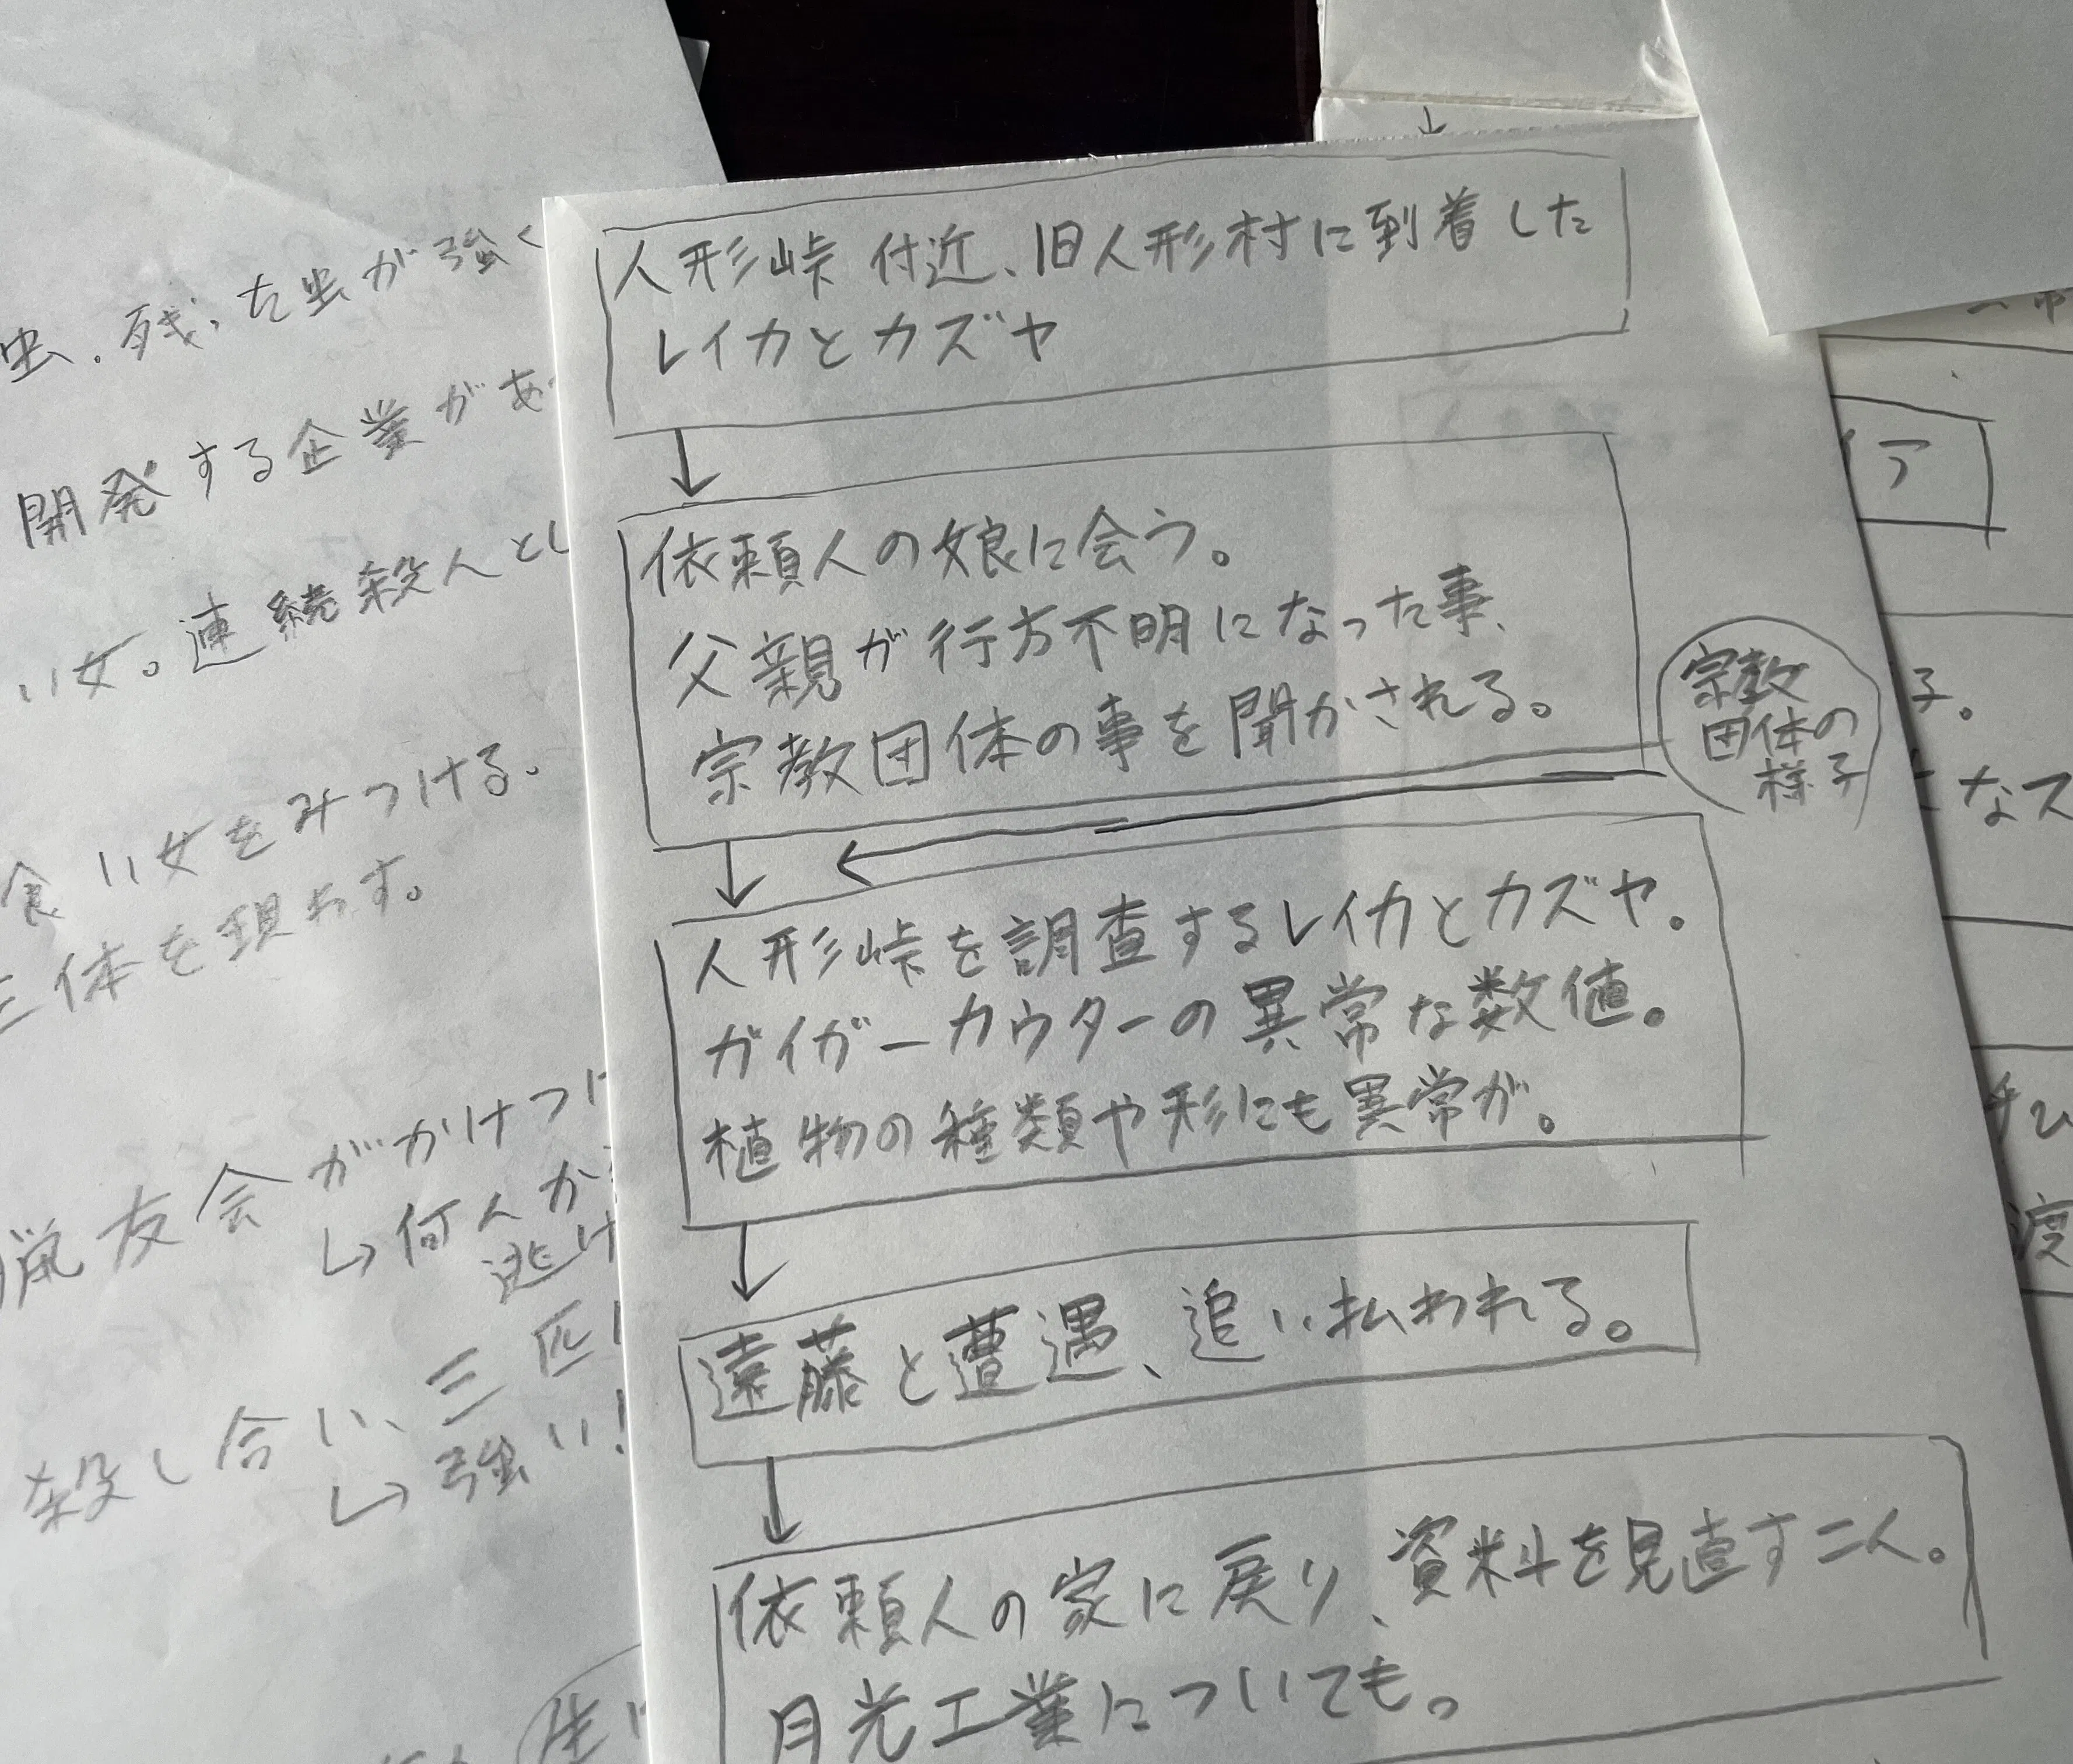 人形峠付近、旧人形村に到着した
レイカとカズヤ
依頼人の娘に会う。
父親が行方不明になった事、
宗教団体の事を聞かされる。
宗教
団体の
様子
人形峠を調査するレイカとカズヤ。
ガイガーカウターの異常な数値。
植物の種類や形にも異常が。
遠藤と遭遇、追い払われる。
依頼人の家に戻り、資料を見直す二人。
月光工業についても。
虫。残った虫が強く
開発する企業があ
い女。連続殺人とし
食い女をみつける。
三体を現わす。
猟友会がかけつけ
↳何人か
逃げ
殺し合い、三匹
↳強い!
イア
子。
なス
渡